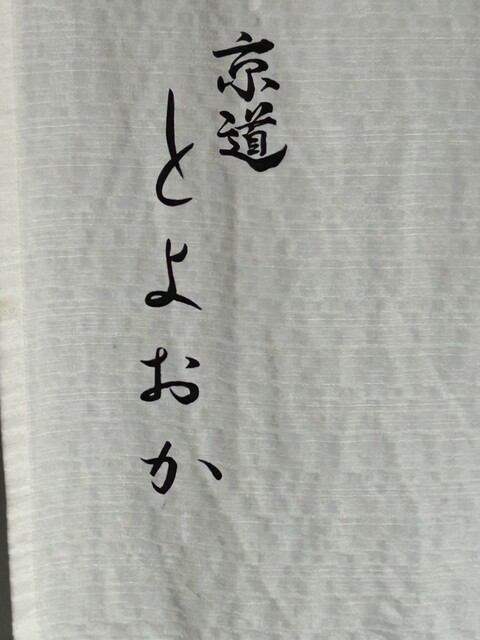 京道
とよおか